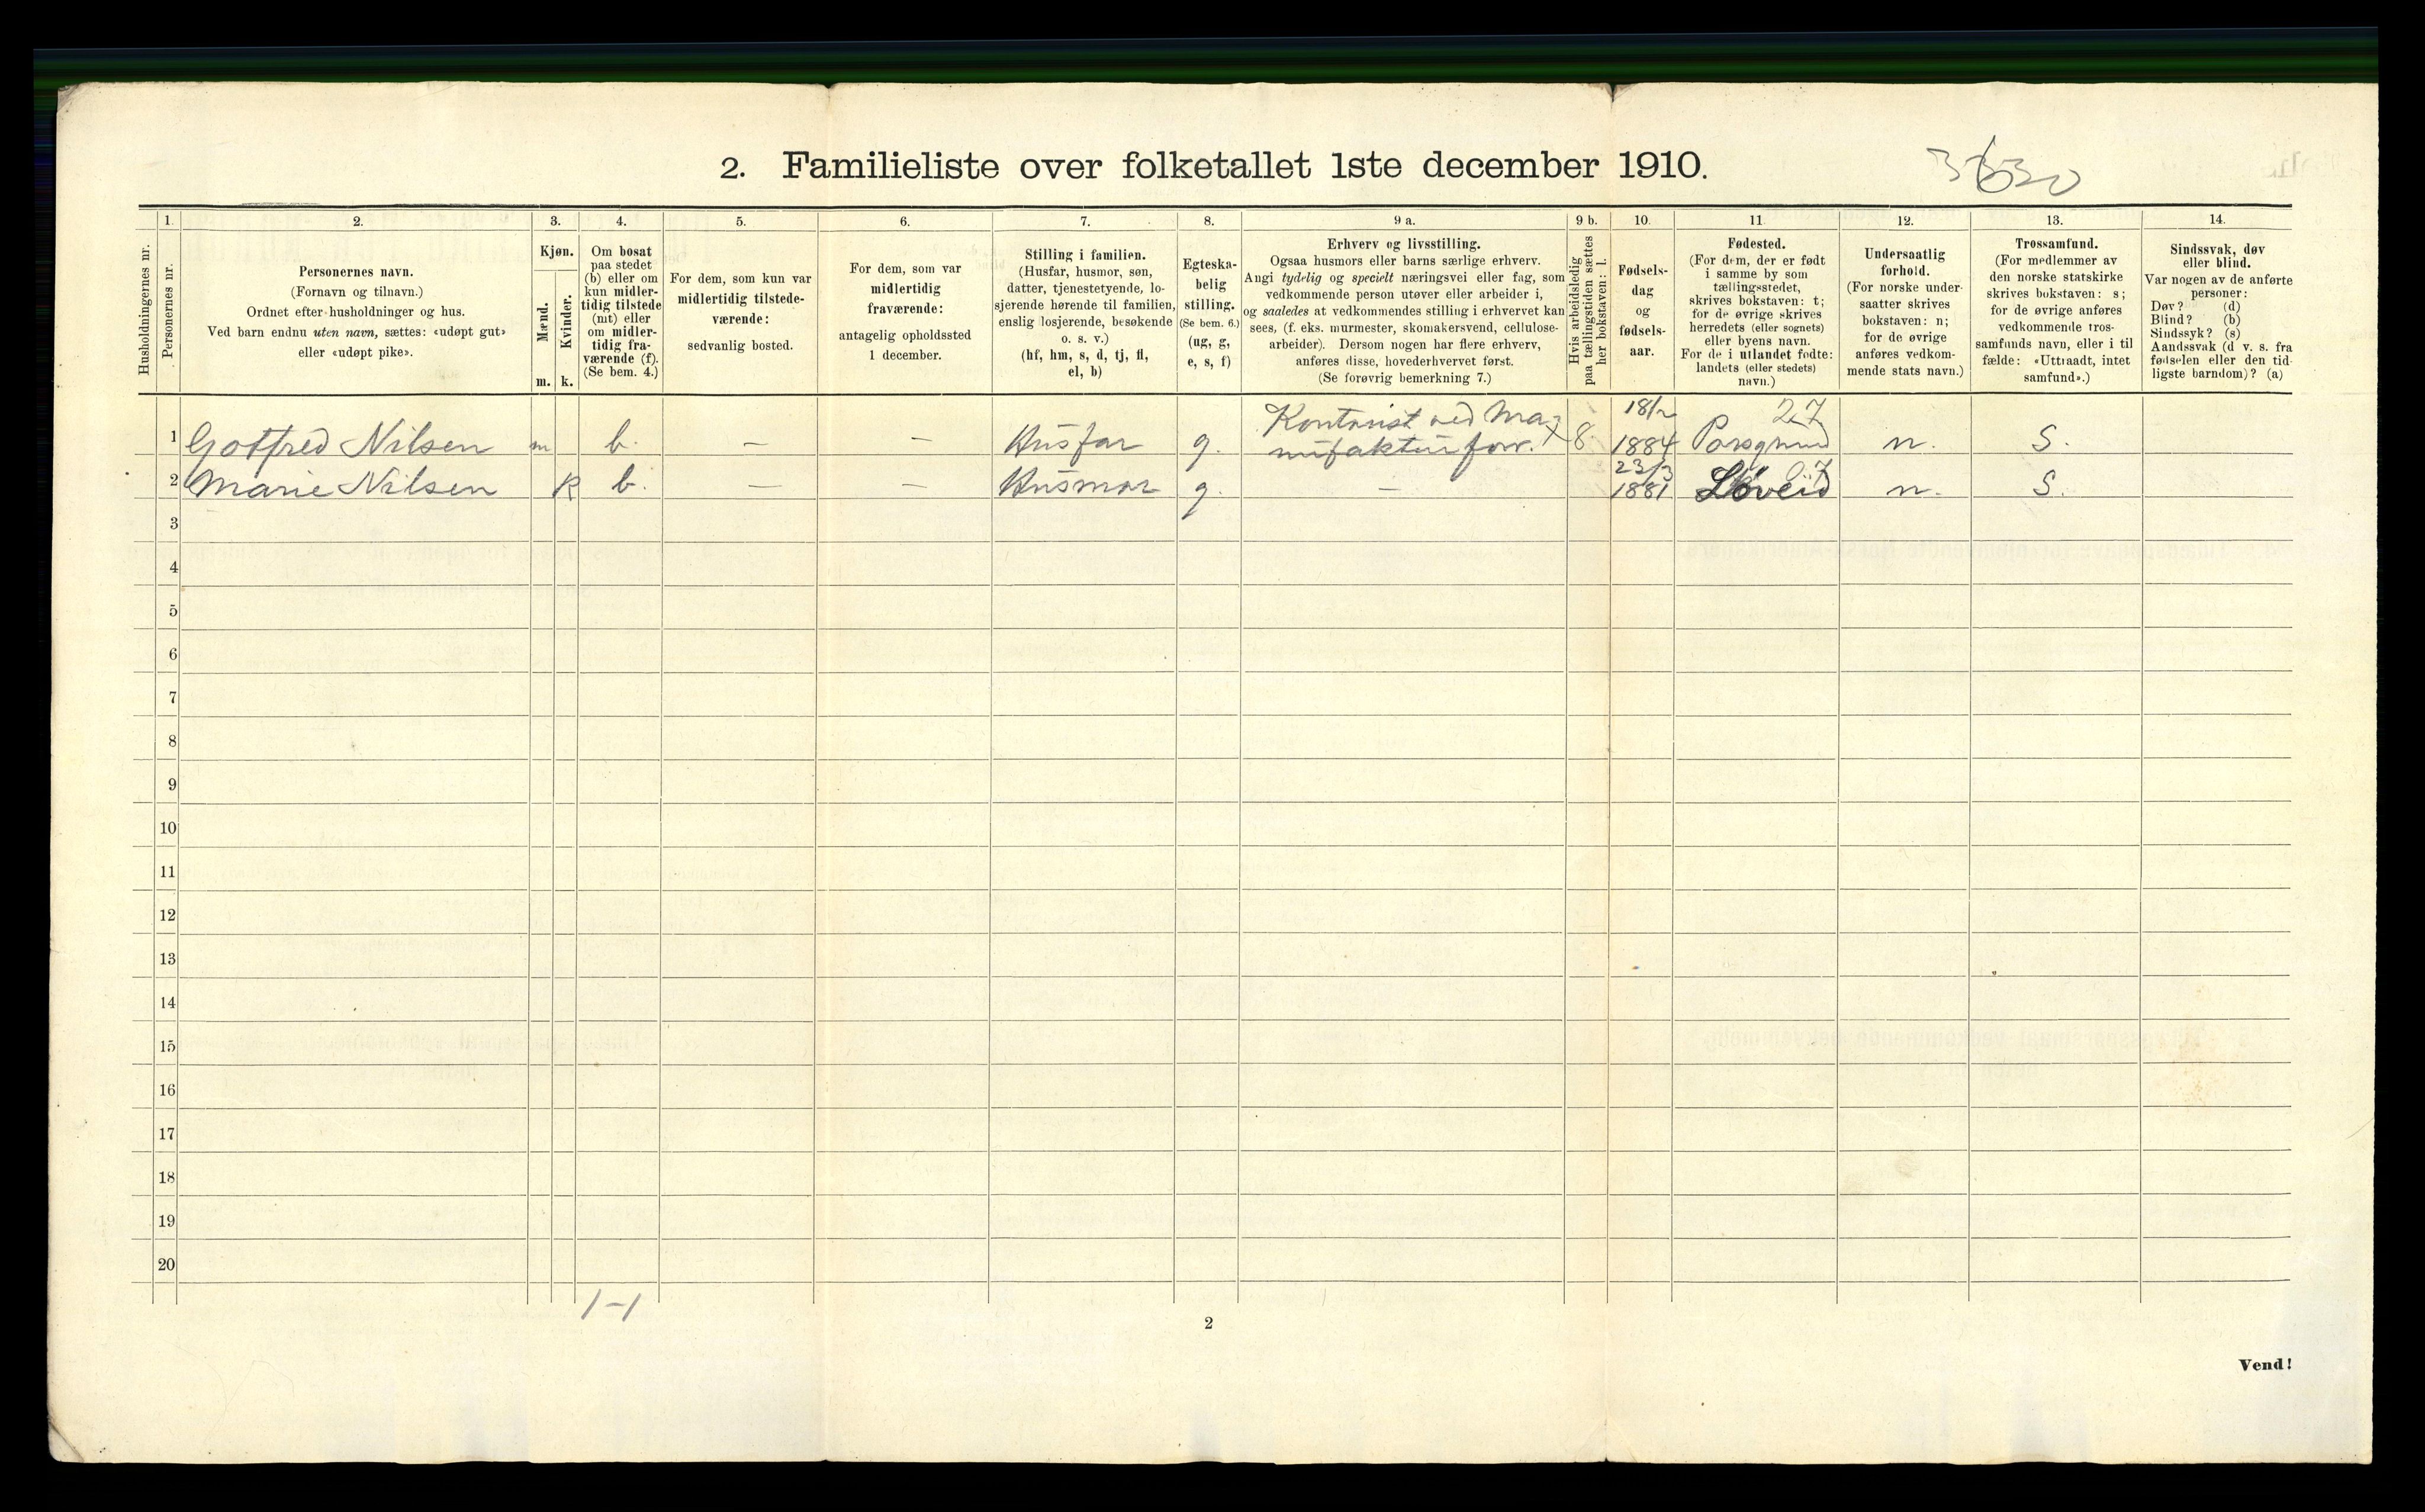 2. Familieliste over folketallet 1ste december 1910.
Husholdningernes nr.
1.
Personernes nr.
2.
Personernes navn.
(Fornavn og tilnavn.)
Ordnet efter husholdninger og hus.
Ved barn endnu uten navn, sættes: «udøpt gut»
eller «udøpt pike».
3.
Kjøn.
Mænd.
Kvinder.
m. k.
4.
Om bosat
paa stedet
(b) eller om
kun midler-
tidig tilstede
(mt) eller
om midler-
tidig fra-
værende (f).
(Se bem. 4.)
5.
For dem, som kun var
midlertidig tilstede-
værende:
sedvanlig bosted.
6.
For dem, som var
midlertidig
fraværende:
antagelig opholdssted
1 december.
7.
Stilling i familien.
(Husfar, husmor, søn,
datter, tjenestetyende, lo-
sjerende hørende til familien,
enslig losjerende, besøkende
o. s. v.)
(hf, hm, s, d, tj, fl,
el, b)
8.
Egteska-
belig
stilling.
(Se bem. 6.)
(ug, g,
e, s, f)
9 a.
Erhverv og livsstilling.
Ogsaa husmors eller barns særlige erhverv.
Angi tydelig og specielt næringsvei eller fag, som
vedkommende person utøver eller arbeider i,
og saaledes at vedkommendes stilling i erhvervet kan
sees, (f. eks. murmester, skomakersvend, cellulose-
arbeider). Dersom nogen har flere erhverv,
anføres disse, hovederhvervet først.
(Se forøvrig bemerkning 7.)
9 b.
Hvis arbeidsledig
paa tællingstiden sættes
her bokstaven: l.
10.
Fødsels-
dag
og
fødsels-
aar.
11.
Fødested.
(For dem, der er født
i samme by som
tællingsstedet,
skrives bokstaven: t;
for de øvrige skrives
herredets (eller sognets)
eller byens navn.
For de i utlandet fødte:
landets (eller stedets)
navn.)
12.
Undersaatlig
forhold.
(For norske under-
saatter skrives
bokstaven: n;
for de øvrige
anføres vedkom-
mende stats navn.)
13.
Trossamfund.
(For medlemmer av
den norske statskirke
skrives bokstaven: s;
for de øvrige anføres
vedkommende tros-
samfunds navn, eller i til-
fælde: «Uttraadt, intet
samfund».)
14.
Sindssvak, døv
eller blind.
Var nogen av de anførte
personer:
Døv? (d)
Blind? (b)
Sindssyk? (s)
Aandssvak (d. v. s. fra
fødselen eller den tid-
ligste barndom)? (a)
1 Gotfred Nilsen m b. – – Husfar g. Kontorist ved Ma-
nufakturforr. 8 18/2 1884 27 Porsgrund n. S.
2 Marie Nilsen k b. – – Husmor g. – 23/3 1881 Løveid n. S.
3
4
5
6
7
8
9
10
11
12
13
14
15
16
17
18
19
20
1–1
2
Vend!